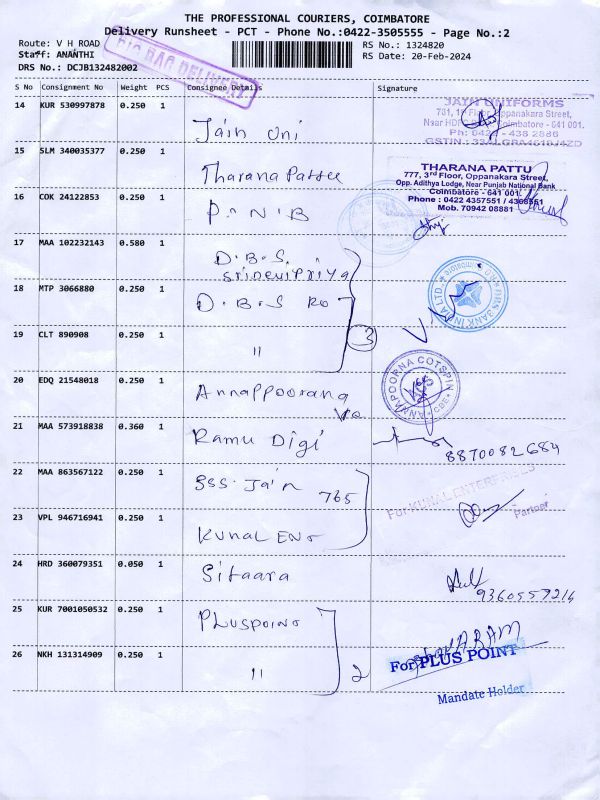 THE PROFESSIONAL COURIERS, COIMBATORE
Delivery Runsheet - PCT - Phone No.:0422-3505555 - Page No.:2
Route: V H ROAD
RS No.: 1324820
Staff: ANANTHI
RS Date: 20-Feb-2024
DRS No.: DCJB132482002
BIG BAG DELIVERY
S No Consignment No Weight PCS Consignee Details Signature
14 KUR 530997878 0.250 1
Jain Uni
JAIN UNIFORMS
Oppanakara Street,
Coimbatore - 641 001.
15 SLM 340035377 0.250 1
Tharana Pattu
THARANA PATTU
777, 3rd Floor, Oppanakara Street,
Opp. Adithya Lodge, Near Punjab National Bank
Coimbatore - 641 001
Phone : 0422 4357551 / 4368551
Mob. 70942 08881
16 COK 24122853 0.250 1
P.N.B
17 MAA 102232143 0.580 1
D.B.S.
Sridevipriya
18 MTP 3066880 0.250 1
D.B.S Ro
19 CLT 890908 0.250 1
11
3
20 EDQ 21548018 0.250 1
Annappoorana
ANNAPOORNA COTSPIN
CBE
21 MAA 573918838 0.360 1
Ramu Digi
8870082684
22 MAA 863567122 0.250 1
SSS Jain 765
For KUNAL ENTERPRISES
Partner
23 VPL 946716941 0.250 1
Kunal Ent
24 HRD 360079351 0.050 1
Sitaara
9360557216
25 KUR 7001050532 0.250 1
Pluspoint
26 NKH 131314909 0.250 1
11
2
For PLUS POINT
Mandate Holder